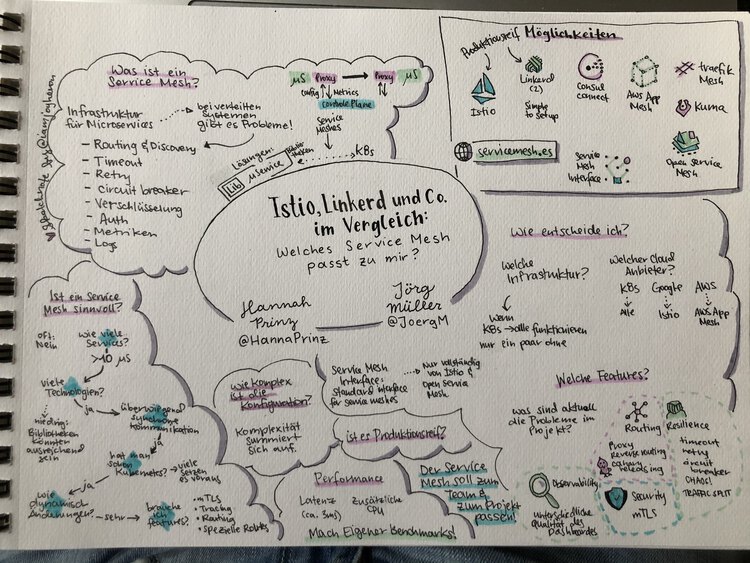 Istio, Linkerd und Co.
im Vergleich:
Welches Service Mesh
passt zu mir?
Hannah
Prinz
@HannaPrinz
Jörg
Müller
@JoergM
Was ist ein
Service Mesh?
Infrastruktur
für Microservices
bei verteilten
Systemen
gibt es Probleme!
- Routing & Discovery
- Timeout
- Retry
- Circuit breaker
- Verschlüsselung
- Auth
- Metriken
- Logs
µS Proxy
Proxy µS
Config
Metrics
Controle Plane
Service
Meshes
Lösungen:
Lib
µService
Biblio
theken
K8s
Produktionsreif
Möglichkeiten
Istio
Linkerd
(2)
Simple
to set up
Consul
connect
AWS App
Mesh
traefik
Mesh
Kuma
Open Service
Mesh
servicemesh.es
Service
Mesh
Interface:
Wie entscheide ich?
welche
Infrastruktur?
wenn
K8s → alle funktionieren
nur ein paar ohne
Welcher Cloud
Anbieter?
K8s Google AWS
Alle Istio AWS App
Mesh
Welche Features?
was sind aktuell
die Probleme im
Projekt?
Routing
Proxy
Reverse routing
canary
releasing
Resilience
timeout
retry
circuit
breaker
CHAOS!
TRAFFIC SPLIT
Observability
unterschiedliche
Qualität des
Dashboardes
Security
mTLS
Ist ein Service
Mesh sinnvoll?
oft:
Nein
wie viele
Services?
>10 µS
viele
Technologien?
niedrig:
Bibliotheken
könnten
ausreichend
sein
ja
überwiegend
synchrone
kommunikation
ja
hat man
schon
Kubernetes?
→ viele
setzen
es voraus
wie
dynamisch
Änderungen?
→ sehr →
brauche
ich
features?
• mTLS
• Tracing
• Routing
• spezielle Routes
wie komplex
ist die
Konfiguration?
Komplexität
summiert
sich auf.
Service Mesh
Interface:
Standard interface
für service meshes
Nur vollständig
von Istio &
Open Service
Mesh
ist es Produktionsreif?
Performance
Latenz
(ca. 3ms)
zusätzliche
CPU
Mach Eigener Benchmarks!
Der Service
Mesh soll zum
Team &
zum Projekt
passen!